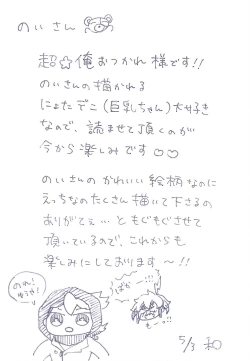 のいさん
超☆俺おつかれ様です!!
のいさんの描かれる
にょたでこ(巨乳ちゃん)大好き
なので、読ませて頂くのが
今から楽しみです♡♡
のいさんのかわいい絵柄なのに
えっちなのたくさん描いて下さるの
ありがてぇ…ともぐもぐさせて
頂いているので、これからも
楽しみにしております〜!!
ばかー!!
もーっ!!
5/3 和